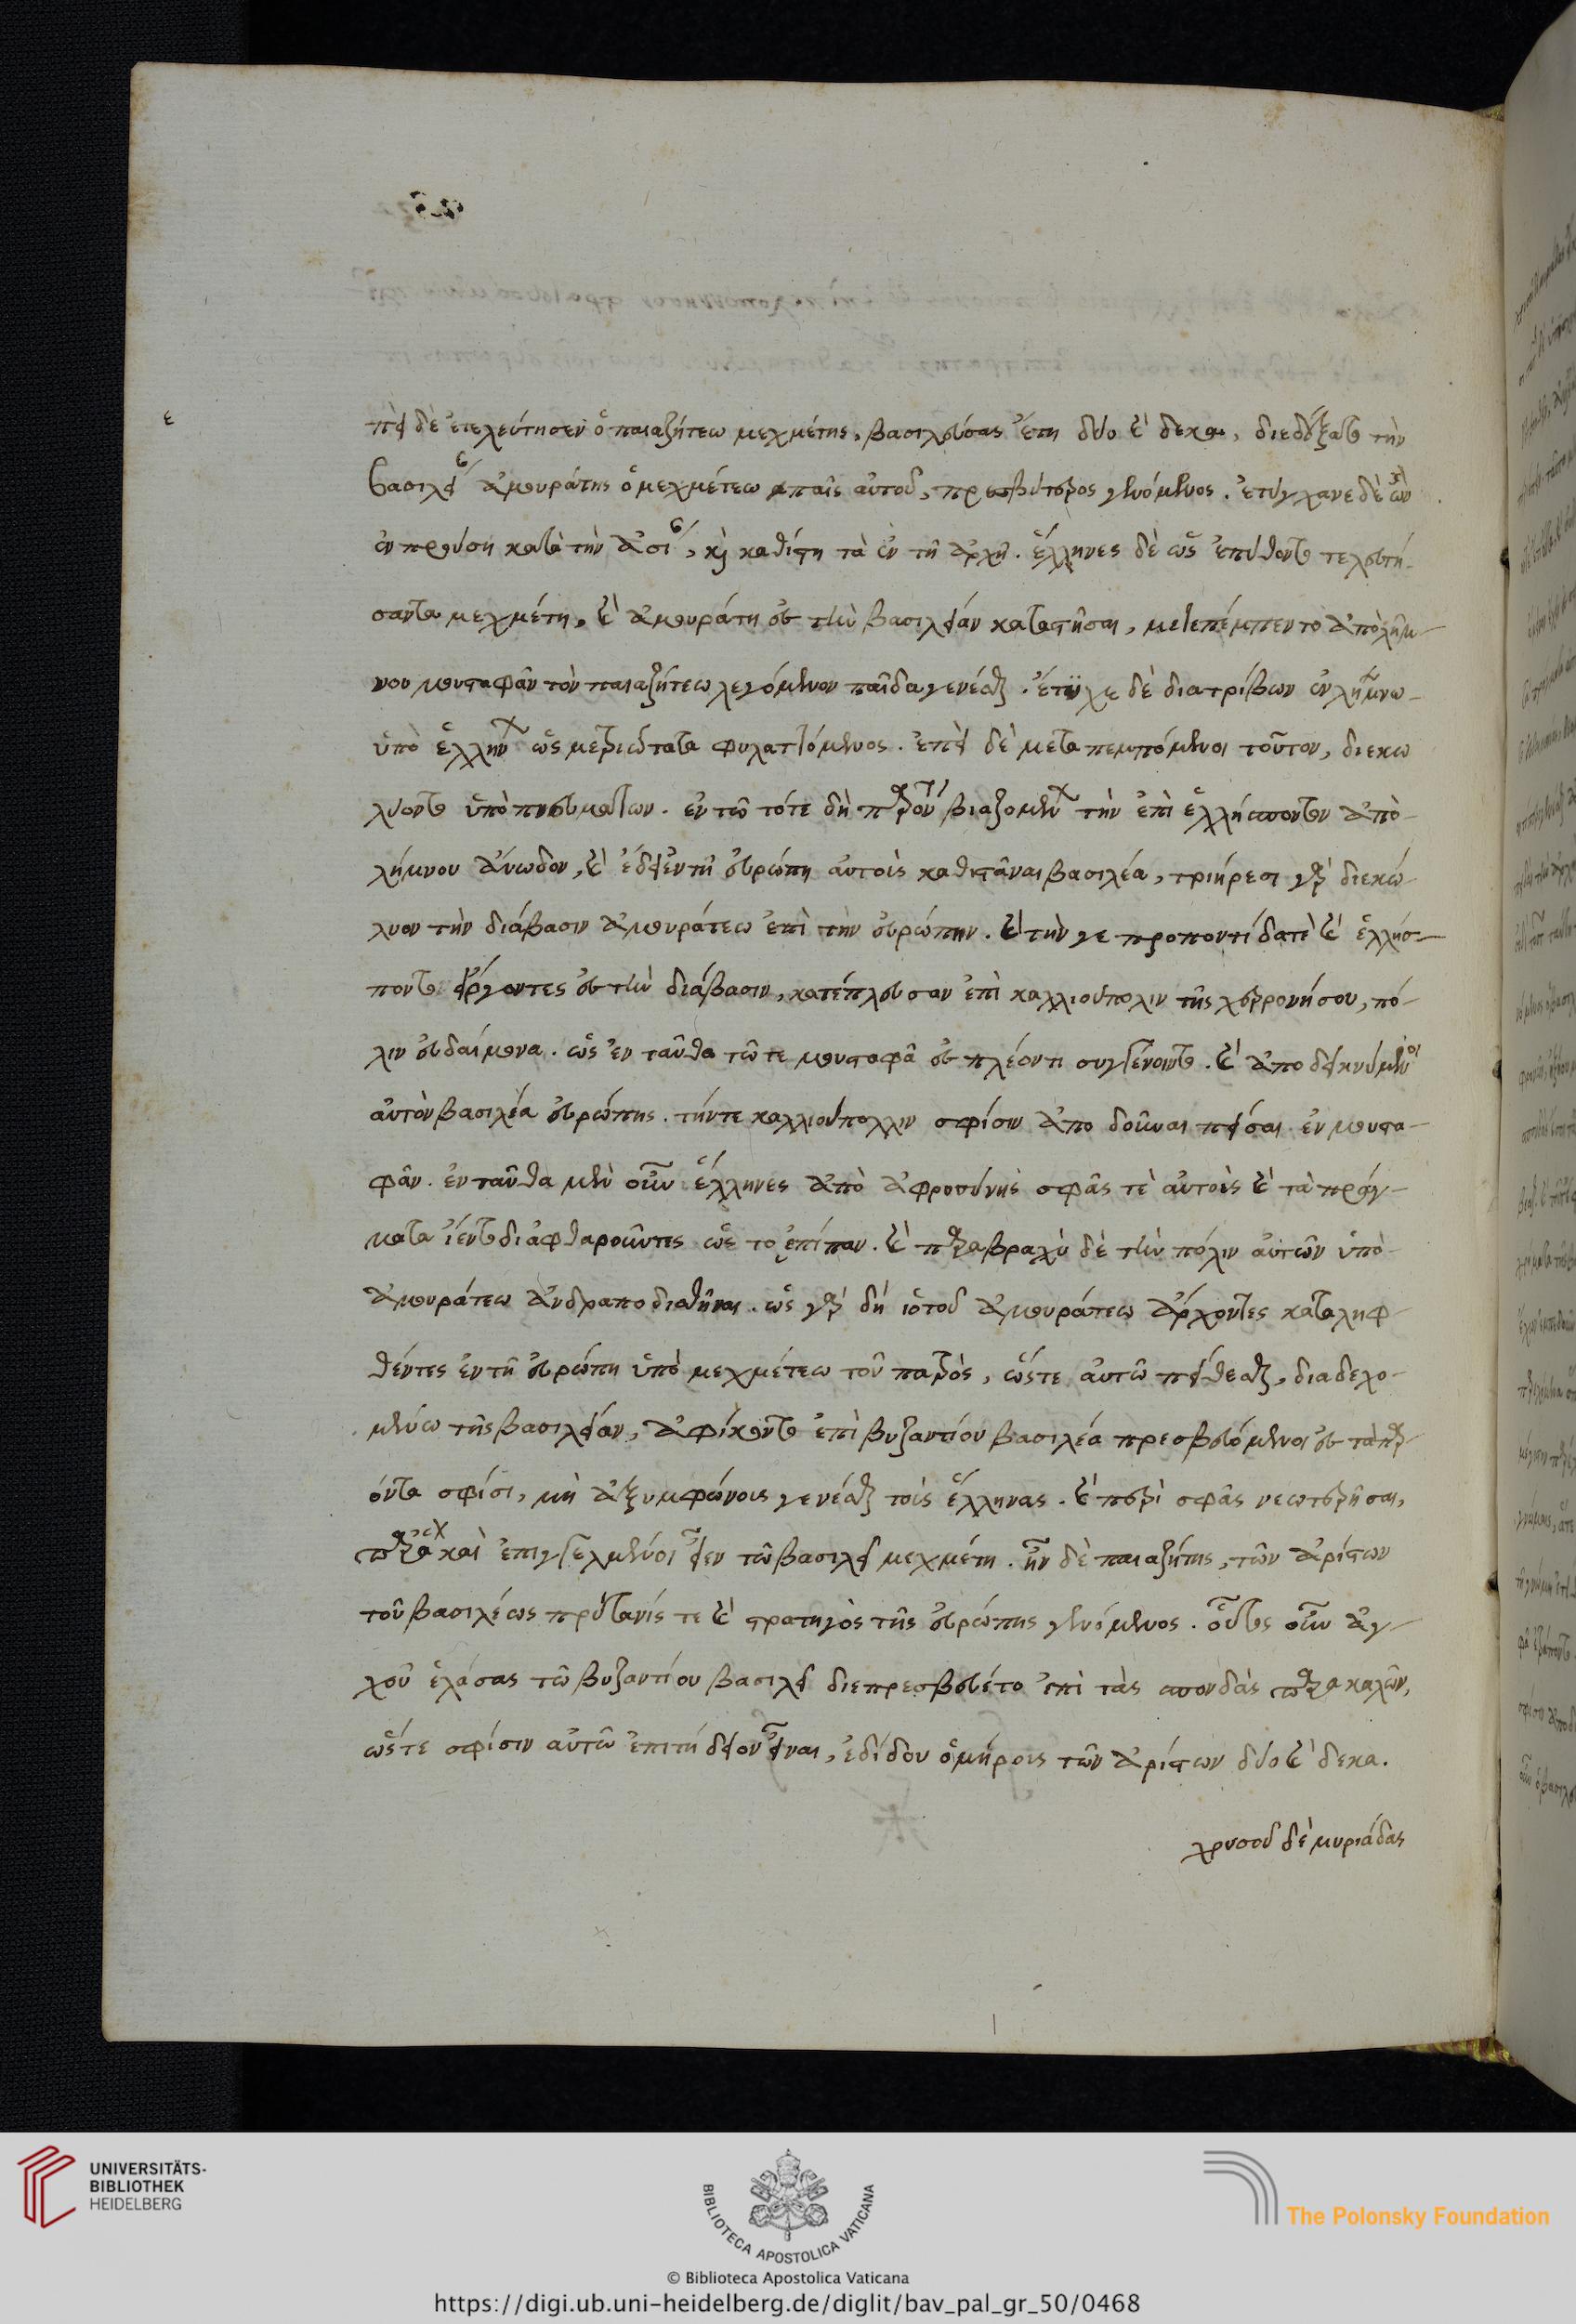 ε
πεὶ δὲ ἐτελεύτησεν ὁ παιαζήτεω μεχμέτης, βασιλεύσας ἔτη δύο καὶ δεκα, διεδέξατο τὴν
βασιλείαν ἀμουράτης ὁ μεχμέτεω παῖς αὐτοῦ, πρεσβύτερος γενόμενος. ἐτύγχανε δὲ ὢν
ἐν προύσῃ κατὰ τὴν ἀσίαν, καὶ καθίστη τὰ ἐν τῇ ἀρχῇ. ἕλληνες δὲ ὡς ἐπύθοντο τελευτή-
σαντα μεχμέτη, καὶ ἀμουράτη ἐς τὴν βασιλείαν καταστῆσαι, μετεπέμπεντο ἀπὸ λήμ-
νου μουσταφᾶν τὸν παιαζήτεω λεγόμενον παῖδα γενέσθαι. ἔτυχε δὲ διατρίβων ἐν λήμνω
ὑπὸ ἑλλήνων ὡς μετριώτατα φυλαττόμενος. ἐπεὶ δὲ μεταπεμπόμενοι τοῦτον, διεκω
λύοντο ὑπὸ πνευμάτων. ἐν τῶ τότε δὴ παρὸν βιαζομένων τὴν ἐπὶ ἑλλήσποντον ἀπὸ
λήμνου ἄνωδον, καὶ ἔδει ἐν τῇ εὐρώπῃ αὐτοὶς καθιστᾶναι βασιλέα, τριήρεσι γὰρ διεκώ
λυον τὴν διάβασιν ἀμουράτεω ἐπὶ τὴν εὐρώπην. καὶ τήν γε προποντίδα τὲ καὶ ἑλλήσ-
ποντο εἴργοντες ἐς τὴν διάβασιν, κατέπλευσαν ἐπὶ καλλιούπολιν τῆς χερρονήσου, πό-
λιν εὐδαίμονα. ὡς ἐνταῦθα τῶ τε μουσταφᾶ ἐπλέοντι συγγένοιντο. καὶ ἀποδεικνύμενοι
αὐτὸν βασιλέα εὐρώπης. τήν τε καλλιούπολλιν σφίσιν ἀποδοῦναι πεῖσαι ἐν μουστα-
φᾶν. ἐνταῦθα μὲν οὖν ἕλληνες ἀπὸ ἀφροσύνης σφᾶς τὲ αὐτοὶς καὶ τὰ πράγ-
ματα ἵεντο διαφθαροῦντες ὡς το ἐπίπαν. καὶ παρα βραχὺ δὲ τὴν πόλιν αὐτῶν ὑπὸ
ἀμουράτεω ἀνδραποδισθῆναι. ὡς γὰρ δή ιὁτοῦ ἀμουράτεω ἄρχοντες καταληφ
θέντες ἐν τῇ εὐρώπῃ ὑπὸ μεχμέτεω τοῦ πατρὸς, ὥστε αὐτῶ πείθεσθαι, διαδεχο-
μένω τῆς βασιλείαν, ἀφίκοντο ἐπὶ βυζαντίου βασιλέα πρεσβευόμενοι ἐς τὰ παρ-
όντα σφίσι, μὴ ἀξυμφώνοις γενέσθαι τοὶς ἕλληνας. καὶ περὶ σφᾶς νεωτερῆσαι,
παρα καὶ ἐπιγγελμένοι εἶεν τῶ βασιλεῖ μεχμέτη. ἦν δὲ παιαζήτης, τῶν ἀρίστων
τοῦ βασιλέως πρύτανίς τε καὶ στρατηγὸς τῆς εὐρώπης γενόμενος. οὗτος οὖν ἀγ-
χοῦ ἐλάσας τῶ βυζαντίου βασιλεῖ διεπρεσβεύετο ἐπὶ τὰς σπονδὰς παρακαλῶν,
ὥστε σφίσιν αὐτῶ ἐπιτήδειον εἶναι, ἐδίδου ὁμήροις τῶν ἀρίστων δύο καὶ δεκα.
χρυσοῦ δὲ μυριάδας
UNIVERSITÄTS-
BIBLIOTHEK
HEIDELBERG
BIBLIOTECA APOSTOLICA VATICANA
The Polonsky Foundation
© Biblioteca Apostolica Vaticana
https://digi.ub.uni-heidelberg.de/diglit/bav_pal_gr_50/0468